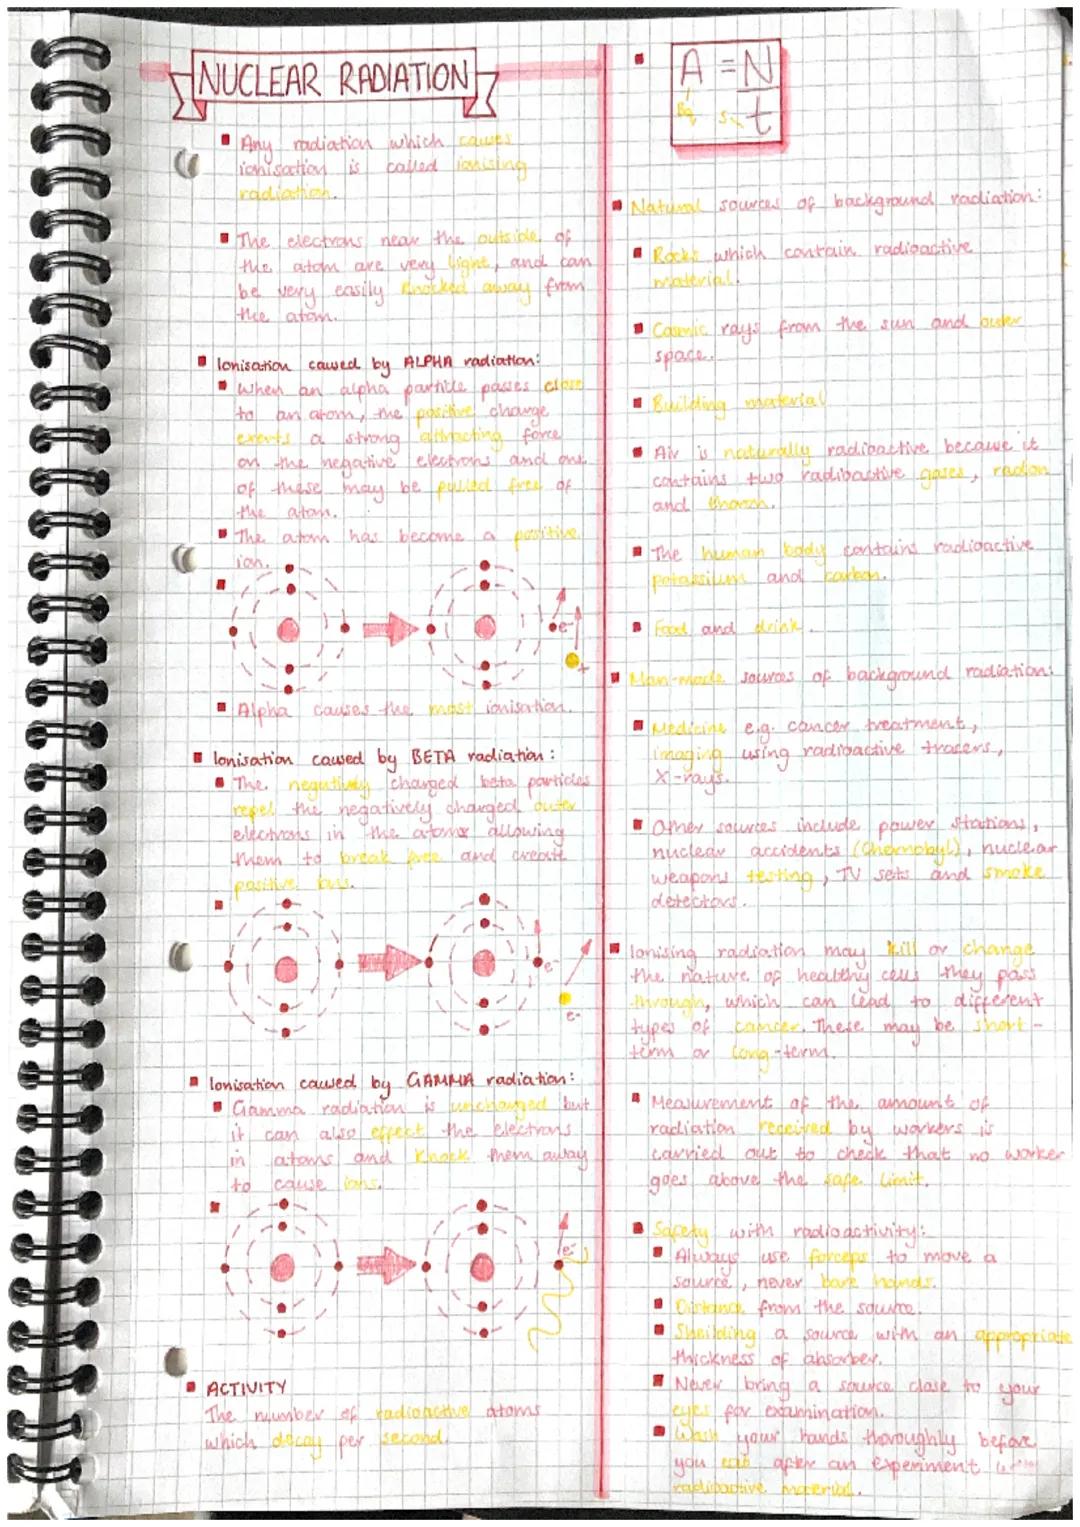 NUCLEAR RADIATION
Any radiation which causes
ionisation is called ionising
radiation.
The electrons near the outside of
the atom are very light, and can
be very easily knocked away from
the atom.
Ionisation caused by ALPHA radiation:
When an alpha particle passes close
to an atom, the positive charge
exerts a strong attracting force
on the negative electrons and one
of these may be pulled free of
the atom.
The atom has become a positive
ion.
e-
+
Alpha causes the most ionisation.
Ionisation caused by BETA radiation:
The negatively charged beta particles
repel the negatively charged outer
electrons in the atoms allowing
them to break free and create
positive ions.
e-
e-
Ionisation caused by GAMMA radiation:
Gamma radiation is uncharged but
it can also effect the electrons
in atoms and knock them away
to cause ions.
e-
ACTIVITY
The number of radioactive atoms
which decay per second.
A = N
Bq s t
Natural sources of background radiation:
Rocks which contain radioactive
material.
Cosmic rays from the sun and outer
space.
Building material
Air is naturally radioactive because it
contains two radioactive gases, radon
and thoron.
The human body contains radioactive
potassium and carbon.
Food and drink.
Man-made sources of background radiation:
Medicine e.g. cancer treatment,
imaging using radioactive tracers,
X-rays.
Other sources include power stations,
nuclear accidents (Chernobyl), nuclear
weapons testing, TV sets and smoke
detectors.
Ionising radiation may kill or change
the nature of healthy cells they pass
through, which can lead to different
types of cancer. These may be short-
term or long-term.
Measurement of the amount of
radiation received by workers is
carried out to check that no worker
goes above the safe limit.
Safety with radioactivity:
Always use forceps to move a
source, never bare hands.
Distance from the source.
Sheilding a source with an appropriate
thickness of absorber.
Never bring a source close to your
eyes for examination.
Wash your hands thoroughly before
you eat after an experiment with
radioactive material.